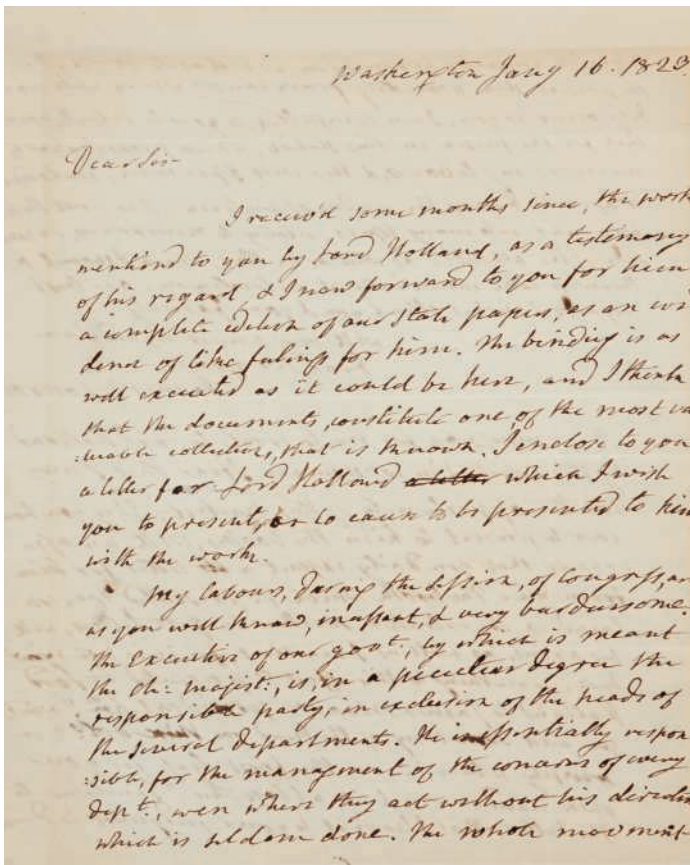 Washington Jany 16. 1823.
Dear Sir
I receiv'd some months since, the work
mentiond to you by Lord Holland, as a testimony
of his regard, & I now forward to you for him
a complete edition of our State papers, as an evi
dence of like feelings for him. The binding is as
well executed as it could be here, and I think
that the documents, constitute one, of the most va
:luable collections, that is known. I enclose to you
a letter for Lord Holland a letter which I wish
you to present, or to cause to be presented to him
with the work.
My labours, during the session, of Congress, are
as you will know, incessant, & very burdensome.
The Executive of our govt:, by which is meant
the ch: majist:, is, in a peculiar degree the
responsible party, in exclusion of the heads of
the several departments. He is essentially respon
:sible, for the management of the concerns of every
dept:, even where they act without his direction
which is seldom done. The whole movement